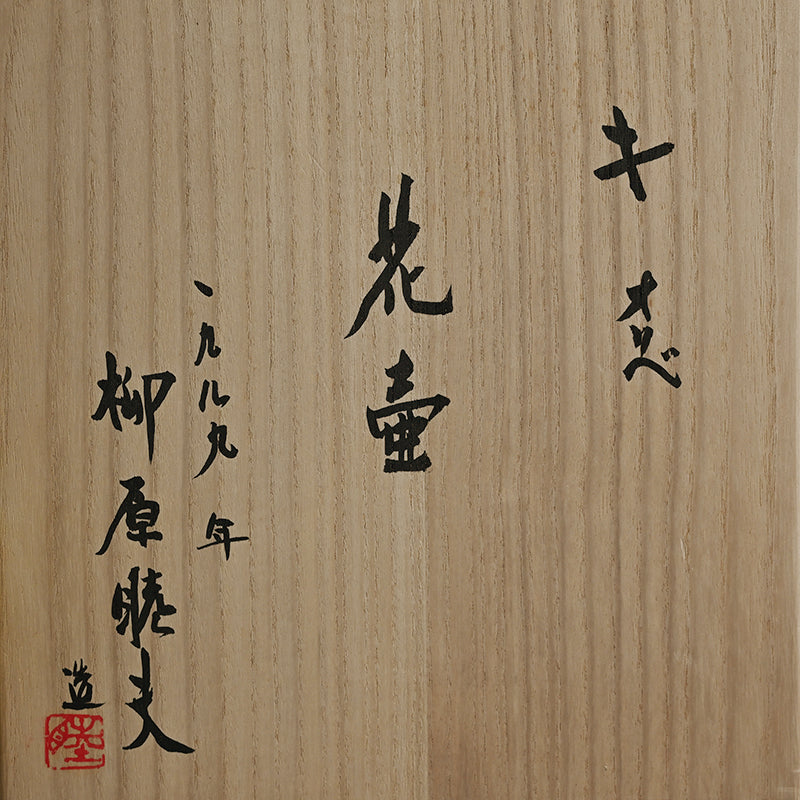 キオリベ
花壷
一九八九年
柳原睦夫
造
睦